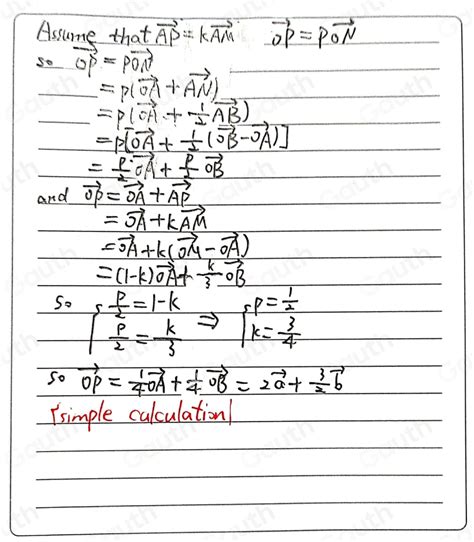 Assume that \overrightarrow{AP} = k\overrightarrow{AM}  \overrightarrow{OP} = p\overrightarrow{ON}
so \overrightarrow{OP} = p\overrightarrow{ON}
= p(\overrightarrow{OA} + \overrightarrow{AN})
= p(\overrightarrow{OA} + \frac{1}{2}\overrightarrow{AB})
= p[\overrightarrow{OA} + \frac{1}{2}(\overrightarrow{OB} - \overrightarrow{OA})]
= \frac{p}{2}\overrightarrow{OA} + \frac{p}{2}\overrightarrow{OB}
and \overrightarrow{OP} = \overrightarrow{OA} + \overrightarrow{AP}
= \overrightarrow{OA} + k\overrightarrow{AM}
= \overrightarrow{OA} + k(\overrightarrow{OM} - \overrightarrow{OA})
= (1-k)\overrightarrow{OA} + \frac{k}{3}\overrightarrow{OB}
so { \frac{p}{2} = 1-k ⇒ { p = \frac{1}{2}
\frac{p}{2} = \frac{k}{3}  k = \frac{3}{4}
so \overrightarrow{OP} = \frac{1}{4}\overrightarrow{OA} + \frac{1}{4}\overrightarrow{OB} = 2\overrightarrow{a} + \frac{3}{2}\overrightarrow{b}
simple calculation
Gauth